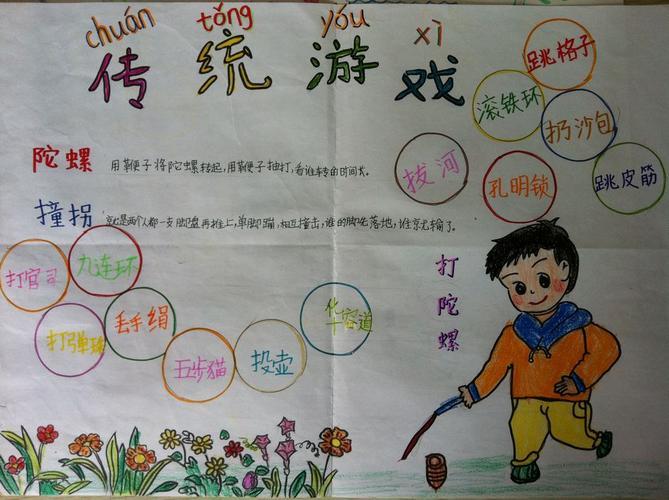 chuán tǒng yóu xì
传统游戏
跳格子
滚铁环
扔沙包
拔河
孔明锁
跳皮筋
陀螺 用鞭子将陀螺转起,用鞭子抽打,看谁转的时间长。
撞拐 就是两个人都一支脚盘再推上,单脚蹦,相互撞击,谁的脚先落地,谁就输了。
打官司
九连环
打弹珠
丢手绢
五步猫
投壶
华容道
打陀螺